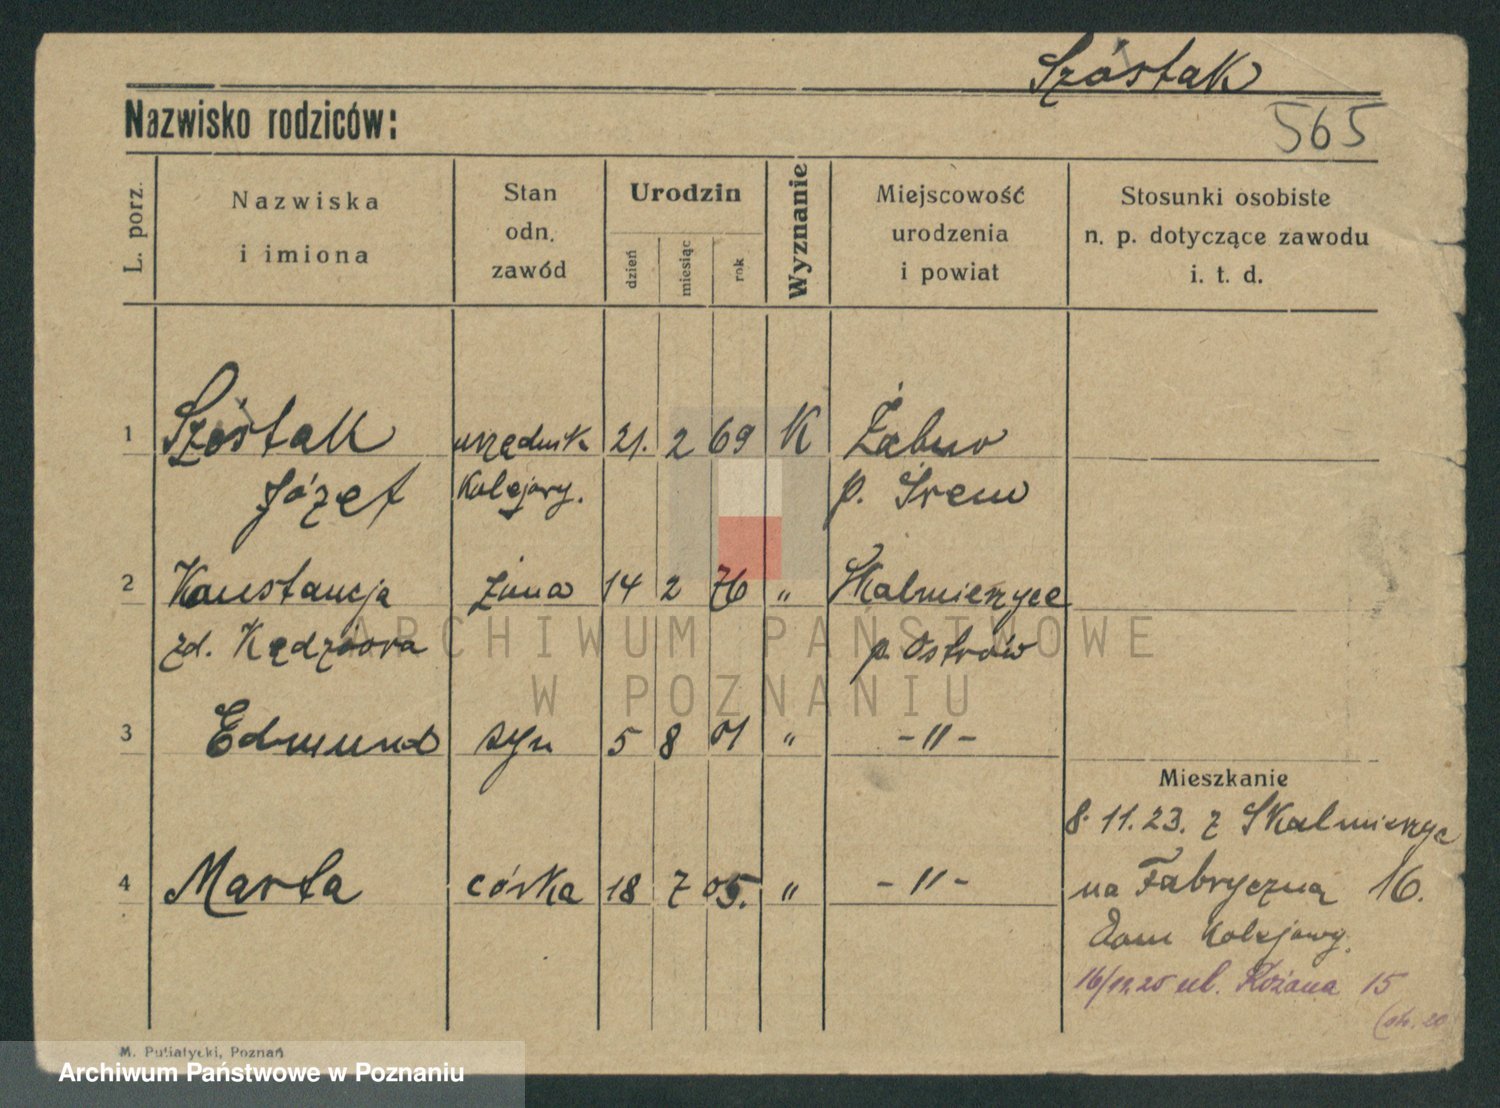 Szóstak
Nazwisko rodziców:
565
L. porz.
Nazwiska
i imiona
Stan
odn.
zawód
Urodzin
dzień
miesiąc
rok
Wyznanie
Miejscowość
urodzenia
i powiat
Stosunki osobiste
n. p. dotyczące zawodu
i. t. d.
1 Szóstak urzędnik 21. 2 69 K Żabno
Józef kolejowy. p. Śrem
2 Konstancja żona 14 2 76 " Skalmierzyce
zd. Kędziora p. Ostrów
ARCHIWUM PAŃSTWOWE
W POZNANIU
3 Edmund syn 5 8 01 " -"-
Mieszkanie
8. 11. 23. z Skalmierzyc
4 Marta córka 18 7 05. " -"-
na Fabryczną 16.
Dom kolejowy.
ul. Różana 15
M. Putiatycki, Poznań
Archiwum Państwowe w Poznaniu